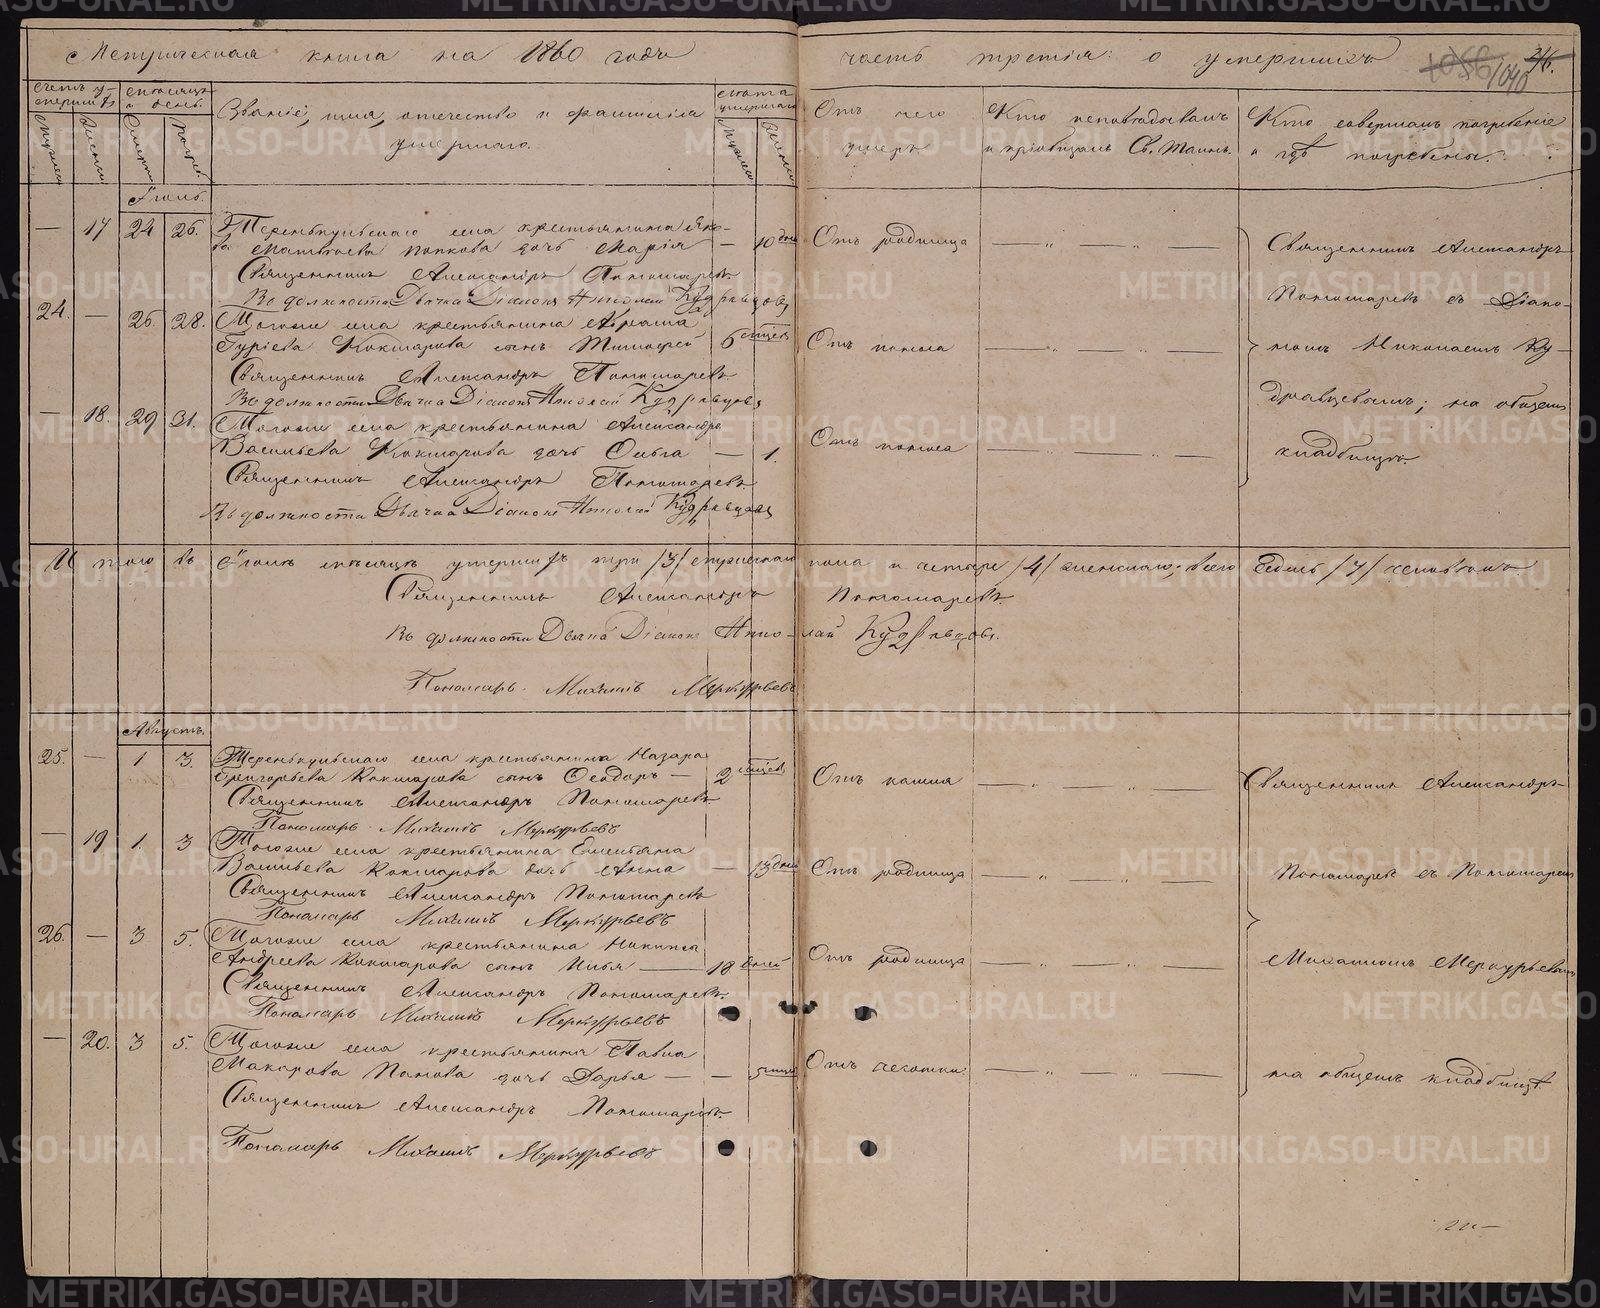 Метрическая книга на 1860 годъ
часть третія: о умершихъ
1040
Счетъ умершихъ
Мѣсяцъ и день.
Званіе, имя, отчество и фамилія умершаго.
Лѣта умершаго
Отъ чего умеръ
Кто исповѣдывалъ и пріобщалъ Св. Таинъ.
Кто совершалъ погребеніе и гдѣ погребены.
Іюль.
— 17 24 26.
села крестьянина Яко-
ва Матвѣева Попкова дочь Марія — 10 дней
Отъ родимца
Священникъ Александръ Пономаревъ
Въ должности Дьячка Діаконъ Николай Кудрявцовъ
24. — 26 28.
Тогоже села крестьянина Абрама
Гуріева Кокшарова сынъ Тимофей 6 мѣсяц
Отъ поноса
Священникъ Александръ Пономаревъ
Въ должности Дьячка Діаконъ Николай Кудрявцовъ
— 18. 29 31.
Тогоже села крестьянина Александра
Васильева Кокшарова дочь Ольга — 1.
Отъ поноса
Священникъ Александръ Пономаревъ
Въ должности Дьячка Діаконъ Николай Кудрявцовъ
Священникъ Александръ
Пономаревъ съ Діако-
номъ Николаемъ Ку-
дрявцевымъ; на общемъ
кладбищѣ.
Итого въ Іюлѣ мѣсяцѣ умершихъ три /3/ мужескаго пола и четыре /4/ женскаго, всего седмь /7/ человѣкъ
Священникъ Александръ Пономаревъ
Въ должности Дьячка Діаконъ Николай Кудрявцовъ.
Пономарь Михаилъ Меркурьевъ
Августъ.
25. — 1 3.
села крестьянина Назара
Григорьева Кокшарова сынъ Ѳеодоръ — 2 мѣсяц
Отъ кашля
Священникъ Александръ Пономаревъ
Пономарь Михаилъ Меркурьевъ
— 19 1. 3
Тогоже села крестьянина Емельяна
Васильева Кокшарова дочь Анна — 13 дней
Отъ родимца
Священникъ Александръ Пономаревъ
Пономарь Михаилъ Меркурьевъ
26. — 3 5.
Тогоже села крестьянина Никиты
Андреева Кокшарова сынъ Илья — 18 дней
Отъ родимца
Священникъ Александръ Пономаревъ
Пономарь Михаилъ Меркурьевъ
— 20. 3 5.
Тогоже села крестьянина Павла
Макарова Попова дочь Дарья —
Отъ чесотки
Священникъ Александръ Пономаревъ
Пономарь Михаилъ Меркурьевъ
Священникъ Александръ
Пономаревъ съ Пономаремъ
Михаиломъ Меркурьевымъ
на общемъ кладбищѣ
METRIKI.GASO-URAL.RU